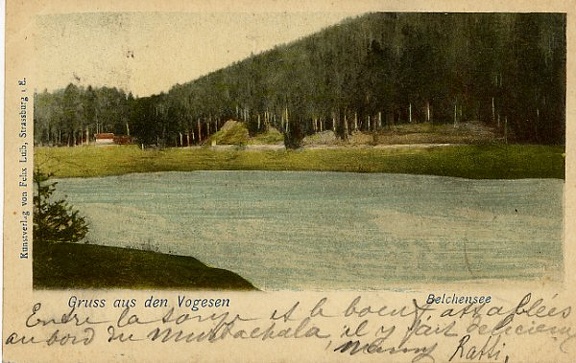 Kunstverlag von Felix Luib, Strassburg i. E.
Gruss aus den Vogesen
Belchensee
Entre la soupe et le boeuf, attablés
au bord du il y fait délicieux